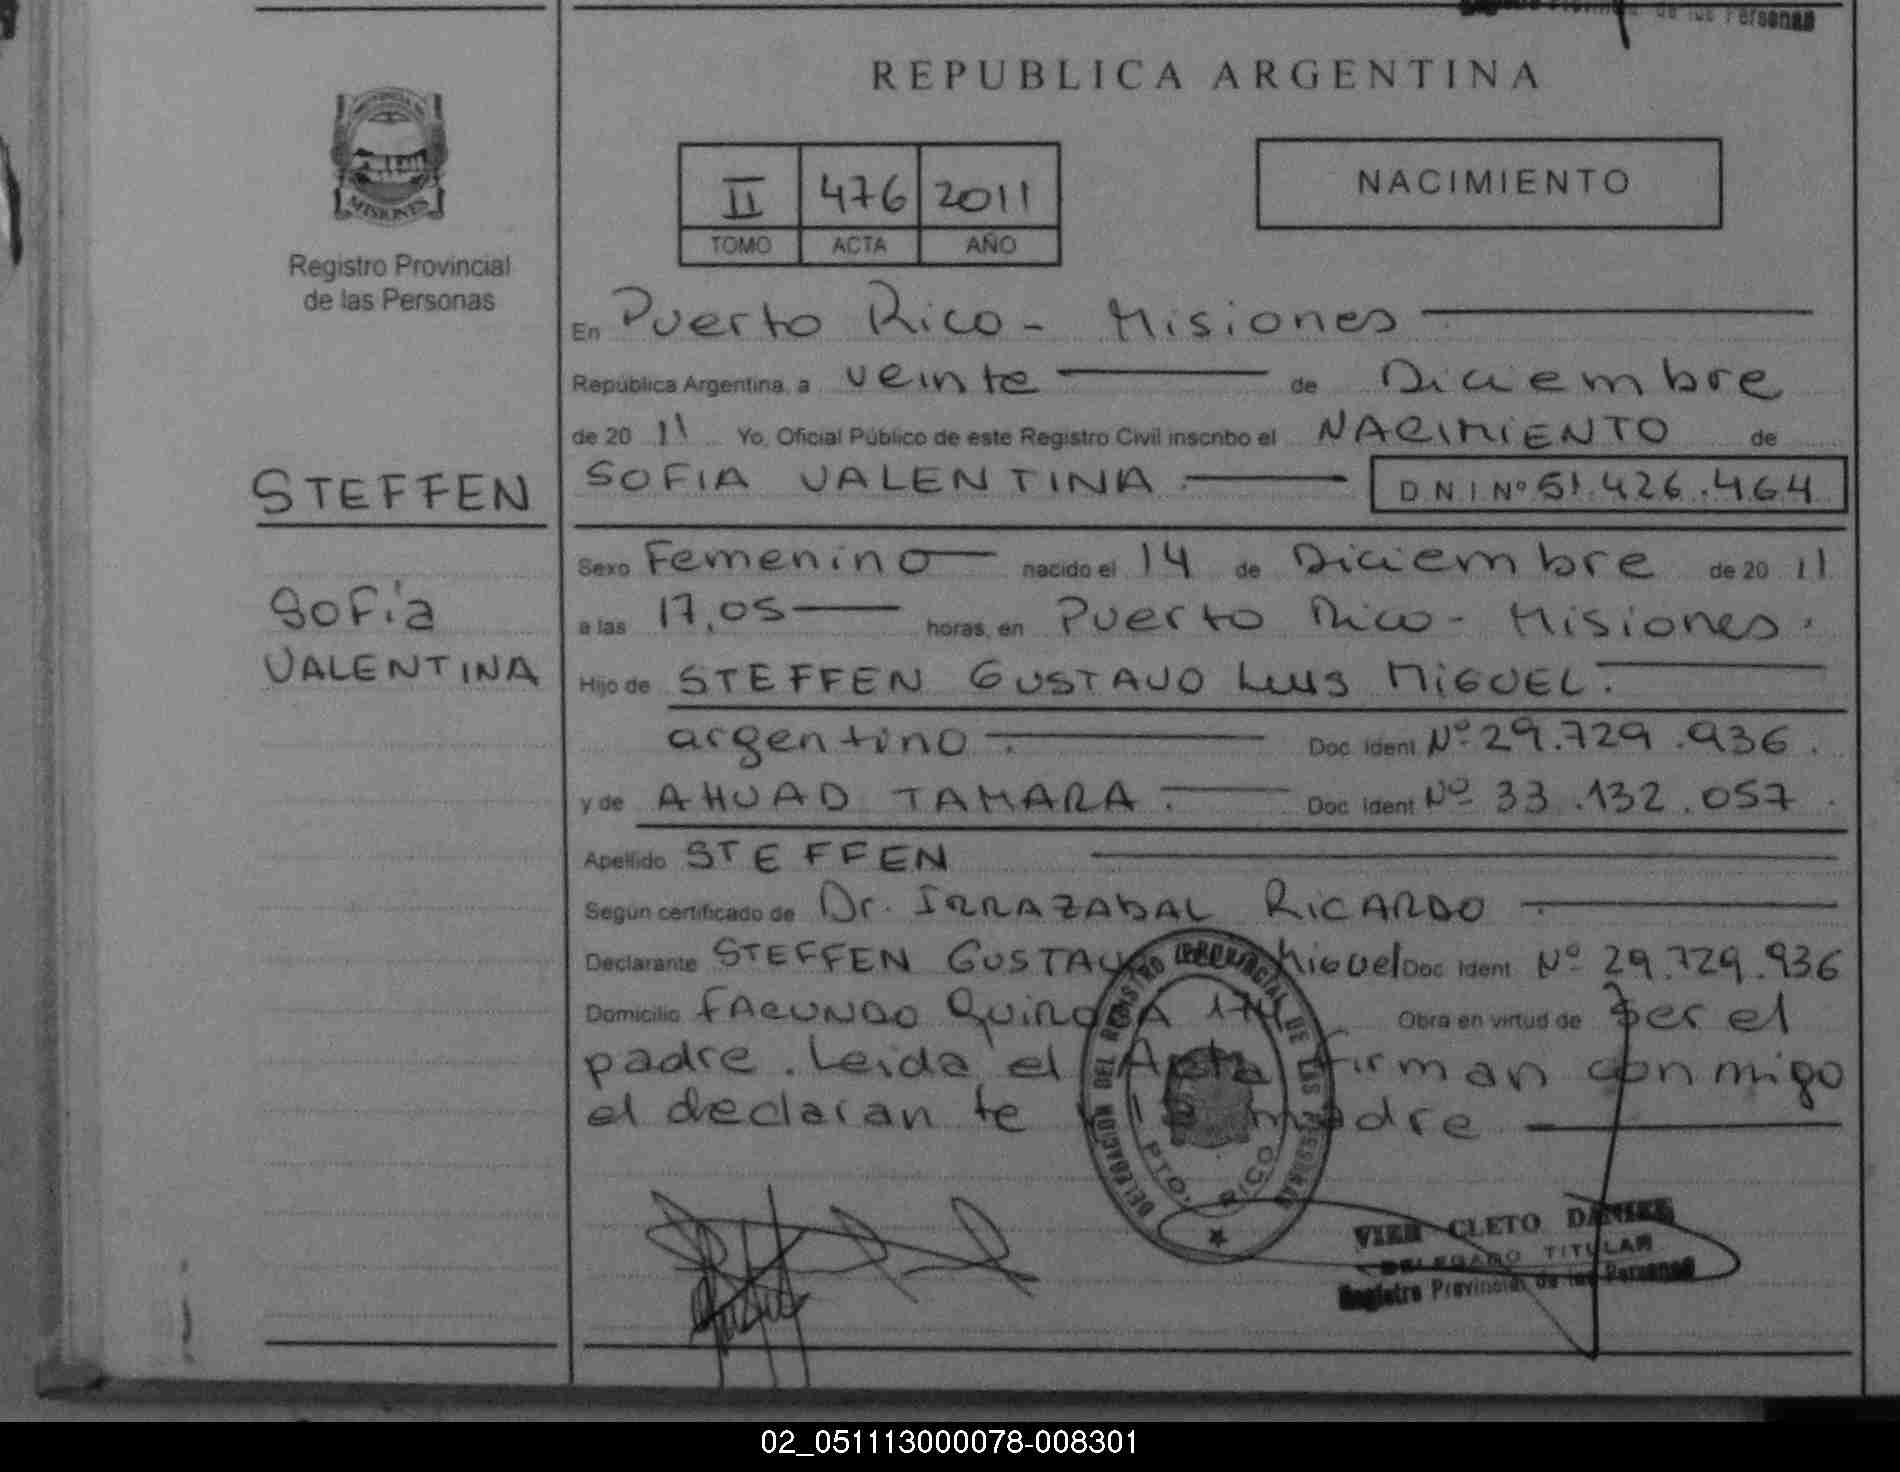 Registro Provincial de las Personas
REPUBLICA ARGENTINA
PROVINCIA DE
MISIONES
Registro Provincial
de las Personas
II 476 2011
TOMO ACTA AÑO
NACIMIENTO
En Puerto Rico - Misiones
República Argentina, a veinte de Diciembre
de 20 11 Yo, Oficial Público de este Registro Civil inscribo el NACIMIENTO de
STEFFEN
SOFIA VALENTINA DNI Nº 51.426.464
Sexo Femenino nacido el 14 de Diciembre de 20 11
Sofía
VALENTINA
a las 17,05 horas, en Puerto Rico - Misiones.
Hijo de STEFFEN GUSTAVO Luis MIGUEL.
argentino. Doc Ident Nº 29.729.936.
y de AHUAD TAMARA. Doc Ident Nº 33.132.057.
Apellido STEFFEN
Según certificado de Dr. IRRAZABAL RICARDO.
Declarante STEFFEN GUSTAV Miguel Doc Ident Nº 29.729.936
Domicilio FACUNDO QUIROGA Obra en virtud de ser el
padre. Leida el Acta firman conmigo
el declarante y la madre
DELEGACION DEL REGISTRO PROVINCIAL DE LAS PERSONAS
PTO. RICO
VIER CLETO DANIEL
DELEGADO TITULAR
Registro Provincial de las Personas
02_051113000078-008301